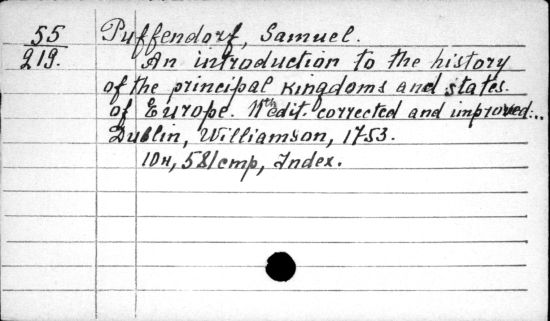 55 Puffendorf, Samuel.
219. An introduction to the history
of the principal kingdoms and states.
of Europe. 11th edit. corrected and improved...
Dublin, Williamson, 1753.
10н, 581стр, Index.